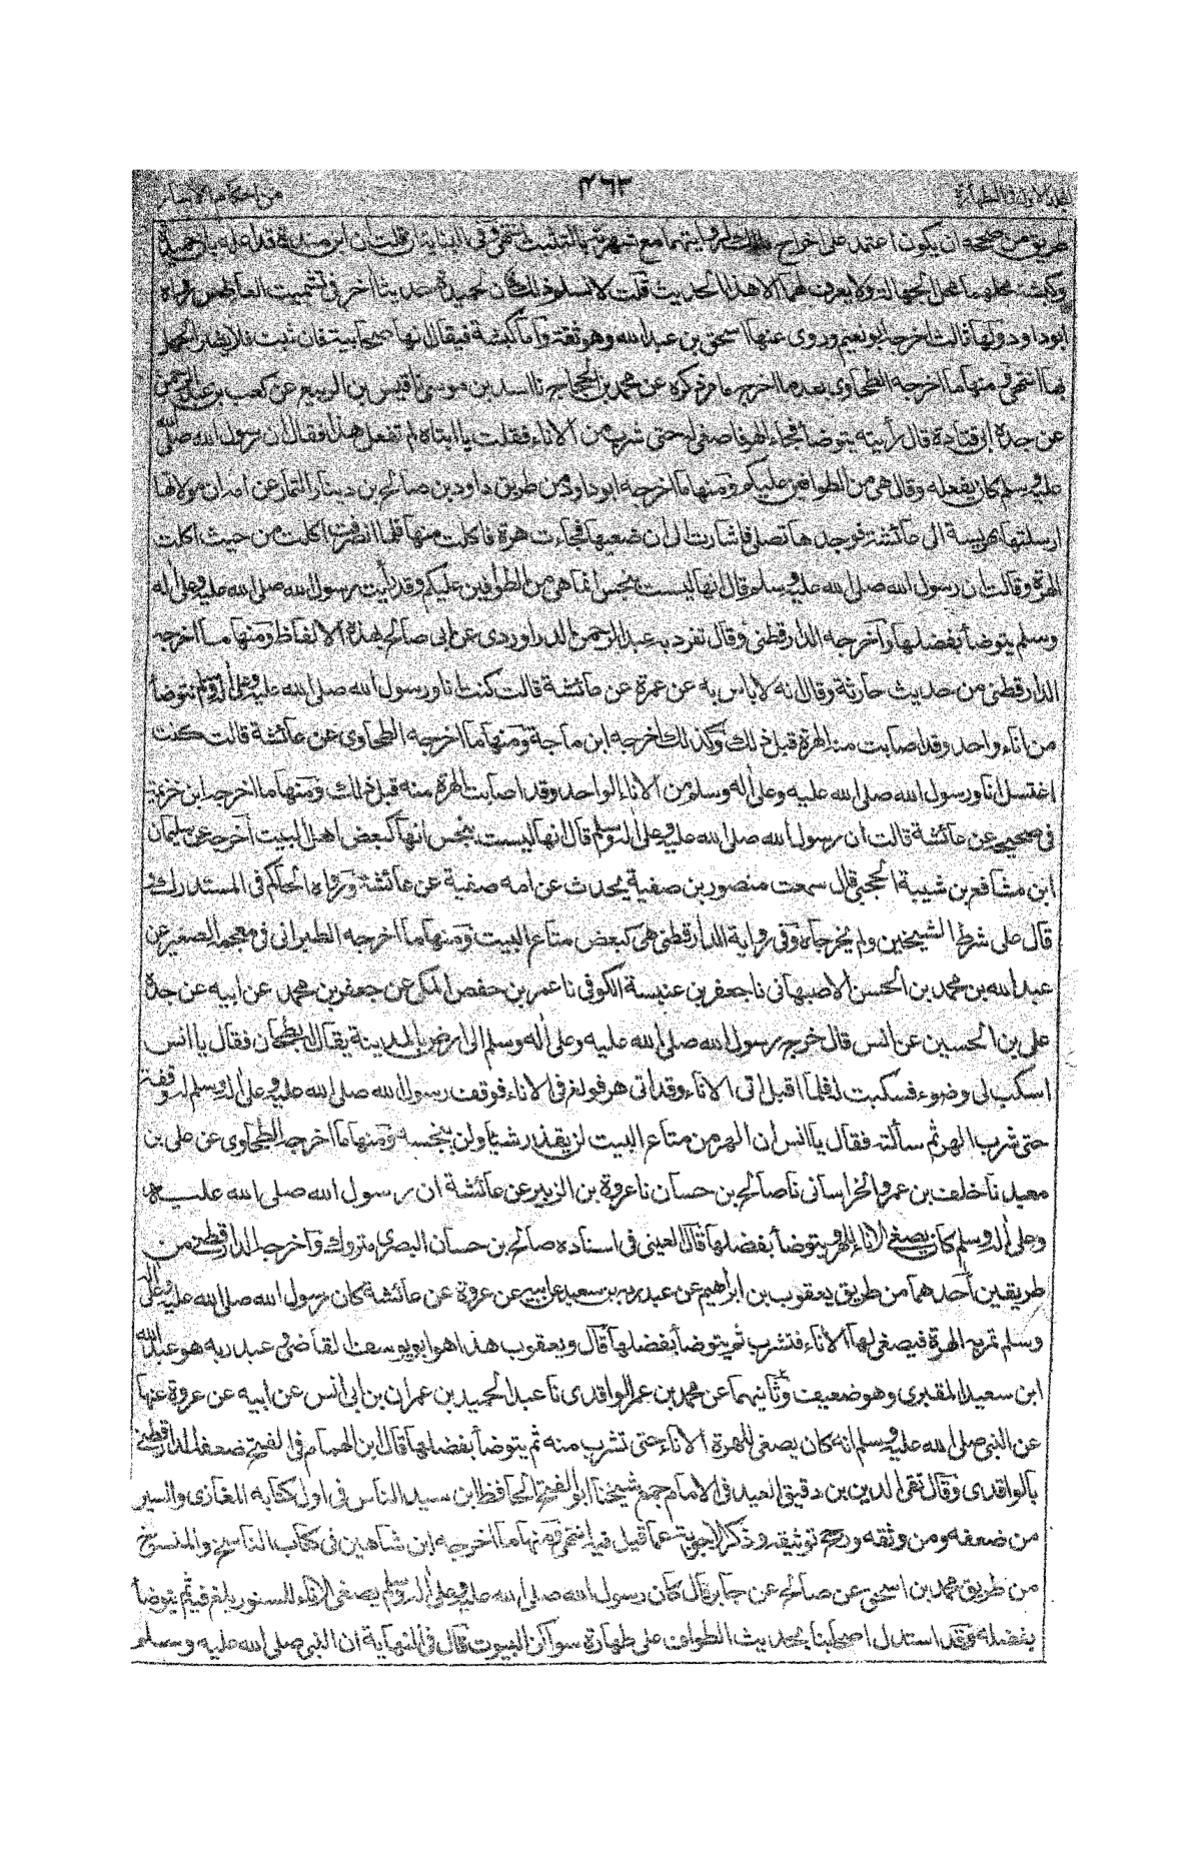 المجلد الاول فی الطهارة ٤٦٣ من احکام الآسار
طریق من صححه ان یکون اعتمد علی اخراج مالك لروایتهما مع شهرته بالتثبت انتهی وفی البنایة فان قلت ان ابن مندة قد اعله بان حمیدة
وکبشة محلهما محل الجهالة ولا یعرف لهما الا هذا الحدیث قلت لا نسلم ذلك فان لحمیدة حدیثا آخر فی تشمیت العاطس رواه
ابو داود ولها ثالث اخرجه ابو نعیم وروی عنها اسحق بن عبد الله وهو ثقة واما کبشة فیقال انها صحابیة فان ثبت فلا یضر الجهل
بها انتهی ومنها ما اخرجه الطحاوی بعد ما اخرج ما مر ذکره عن محمد بن الحجاج نا اسد بن موسی نا قیس بن الربیع عن کعب بن عبد الرحمن
عن جده ابی قتادة قال رأیته یتوضأ فجاء الهر فاصغی له حتی شرب من الاناء فقلت یا ابتاه لم تفعل هذا فقال ان رسول الله صلی الله
علیه وسلم کان یفعله وقال هی من الطوافین علیکم ومنها ما اخرجه ابو داود من طریق داود بن صالح بن دینار التمار عن امه ان مولاتها
ارسلتها بهریسة الی عائشة فوجدهتا تصلی فاشارت الی ان ضعیها فجاءت هرة فاکلت منها فلما انصرفت اکلت من حیث اکلت
الهرة وقالت ان رسول الله صلی الله علیه وسلم قال انها لیست بنجس انما هی من الطوافین علیکم وقد رأیت رسول الله صلی الله علیه وعلی اله
وسلم یتوضأ بفضلها واخرجه الدارقطنی وقال تفرد به عبد الرحمن الدراوردی عن ابی صالح بهذه الالفاظ ومنها ما اخرجه
الدارقطنی من حدیث حارثة وقال انه لا باس به عن عمرة عن عائشة قالت کنت انا ورسول الله صلی الله علیه وعلی اله وسلم نتوضأ
من اناء واحد وقد اصابت منه الهرة قبل ذلك وکذلك اخرجه ابن ماجة ومنها ما اخرجه الطحاوی عن عائشة قالت کنت
اغتسل انا ورسول الله صلی الله علیه وعلی اله وسلم من الاناء الواحد وقد اصابت الهرة منه قبل ذلك ومنها ما اخرجه ابن خزیمة
فی صحیحه عن عائشة قالت ان رسول الله صلی الله علیه وعلی اله وسلم قال انها لیست بنجس انها کبعض اهل البیت اخرجه عن سلیمان
ابن مشافع بن شیبة الحجبی قال سمعت منصور بن صفیة یحدث عن امه صفیة عن عائشة ورواه الحاکم فی المستدرك و
قال علی شرط الشیخین ولم یخرجاه وفی روایة الدارقطنی هی کبعض متاع البیت ومنها ما اخرجه الطبرانی فی معجمه الصغیر عن
عبد الله بن محمد بن الحسن الاصبهانی نا جعفر بن عنبسة الکوفی نا عمر بن حفص المکی عن جعفر بن محمد عن ابیه عن جده
علی بن الحسین عن انس قال خرج رسول الله صلی الله علیه وعلی اله وسلم الی ارض بالمدینة یقال له بطحان فقال یا انس
اسکب لی وضوء فسکبت له فلما اقبل اتی الاناء وقد اتی هر فولغ فی الاناء فوقف رسول الله صلی الله علیه وعلی اله وسلم له وقفة
حتی شرب الهر ثم سألته فقال یا انس ان الهر من متاع البیت لن یقذر شیئا ولن ینجسه ومنها ما اخرجه الطحاوی عن علی بن
معبد نا خلف بن عمرو الخراسانی نا صالح بن حسان نا عروة بن الزبیر عن عائشة ان رسول الله صلی الله علیه
وعلی اله وسلم کان یصغی الاناء للهر ویتوضأ بفضلها قال العینی فی اسناده صالح بن حسان البصری متروك واخرجه الدارقطنی من
طریقین احدهما من طریق یعقوب بن ابراهیم عن عبد ربه بن سعید عن ابیه عن عروة عن عائشة کان رسول الله صلی الله علیه وعلی اله
وسلم تمر به الهرة فیصغی لها الاناء فتشرب ثم یتوضأ بفضلها قال ویعقوب هذا هو ابو یوسف القاضی وعبد ربه هو عبد الله
ابن سعید المقبری وهو ضعیف وثانیهما عن محمد بن عمر الواقدی نا عبد الحمید بن عمران بن ابی انس عن ابیه عن عروة عنها
عن النبی صلی الله علیه وسلم انه کان یصغی للهرة الاناء حتی تشرب منه ثم یتوضأ بفضلها قال ابن الهمام فی الفتح ضعفه الدارقطنی
بالواقدی وقال تقی الدین بن دقیق العید فی الامام جمع شیخنا ابو الفتح الحافظ ابن سید الناس فی اول کتابه المغازی والسیر
من ضعفه ومن وثقه ورجح توثیقه وذکر الاجوبة عما قیل فیه انتهی ومنها ما اخرجه ابن شاهین فی کتاب الناسخ والمنسوخ
من طریق محمد بن اسحق عن صالح عن جابر قال کان رسول الله صلی الله علیه وعلی اله وسلم یصغی الاناء للسنور یلغ فیه ثم یتوضأ
بفضله وقد استدل اصحابنا بحدیث الطواف علی طهارة سواکن البیوت قال فی النهایة ان النبی صلی الله علیه وسلم